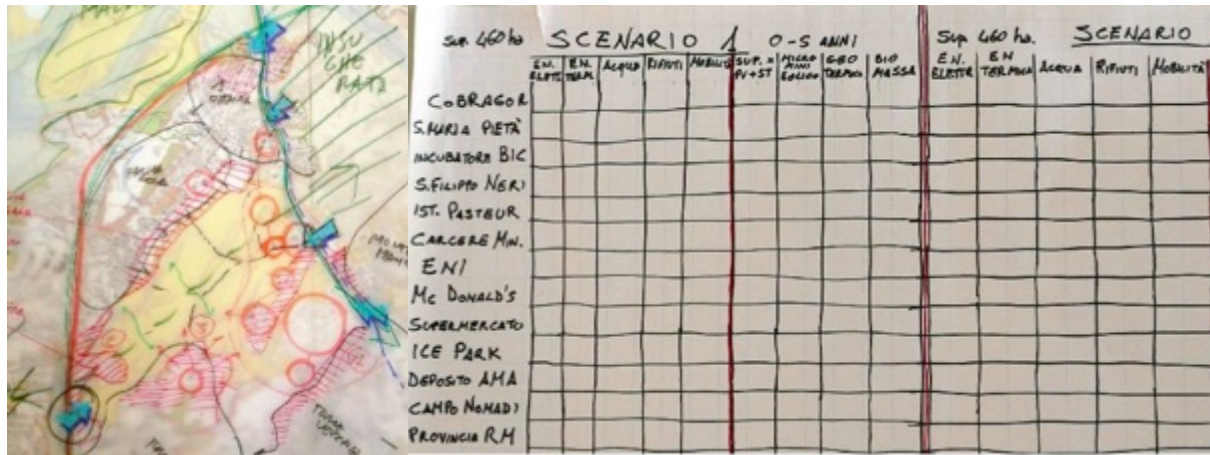 INSU
GHE
RATA
Sup. 460 ha SCENARIO 1 0-5 ANNI
EN. ELETTR EN TERM. ACQUA RIFIUTI MOBILITÀ SUP. x PV+ST MICRO MINI EOLICO GEO TERMICO BIO MASSA
COBRAGOR
S. MARIA PIETÀ
INCUBATORE BIC
S. FILIPPO NERI
IST. PASTEUR
CARCERE MIN.
ENI
Mc DONALD'S
SUPERMERCATO
ICE PARK
DEPOSITO AMA
CAMPO NOMADI
PROVINCIA RM
Sup 460 ha. SCENARIO
EN. ELETTR EN TERMICA ACQUA RIFIUTI MOBILITÀ